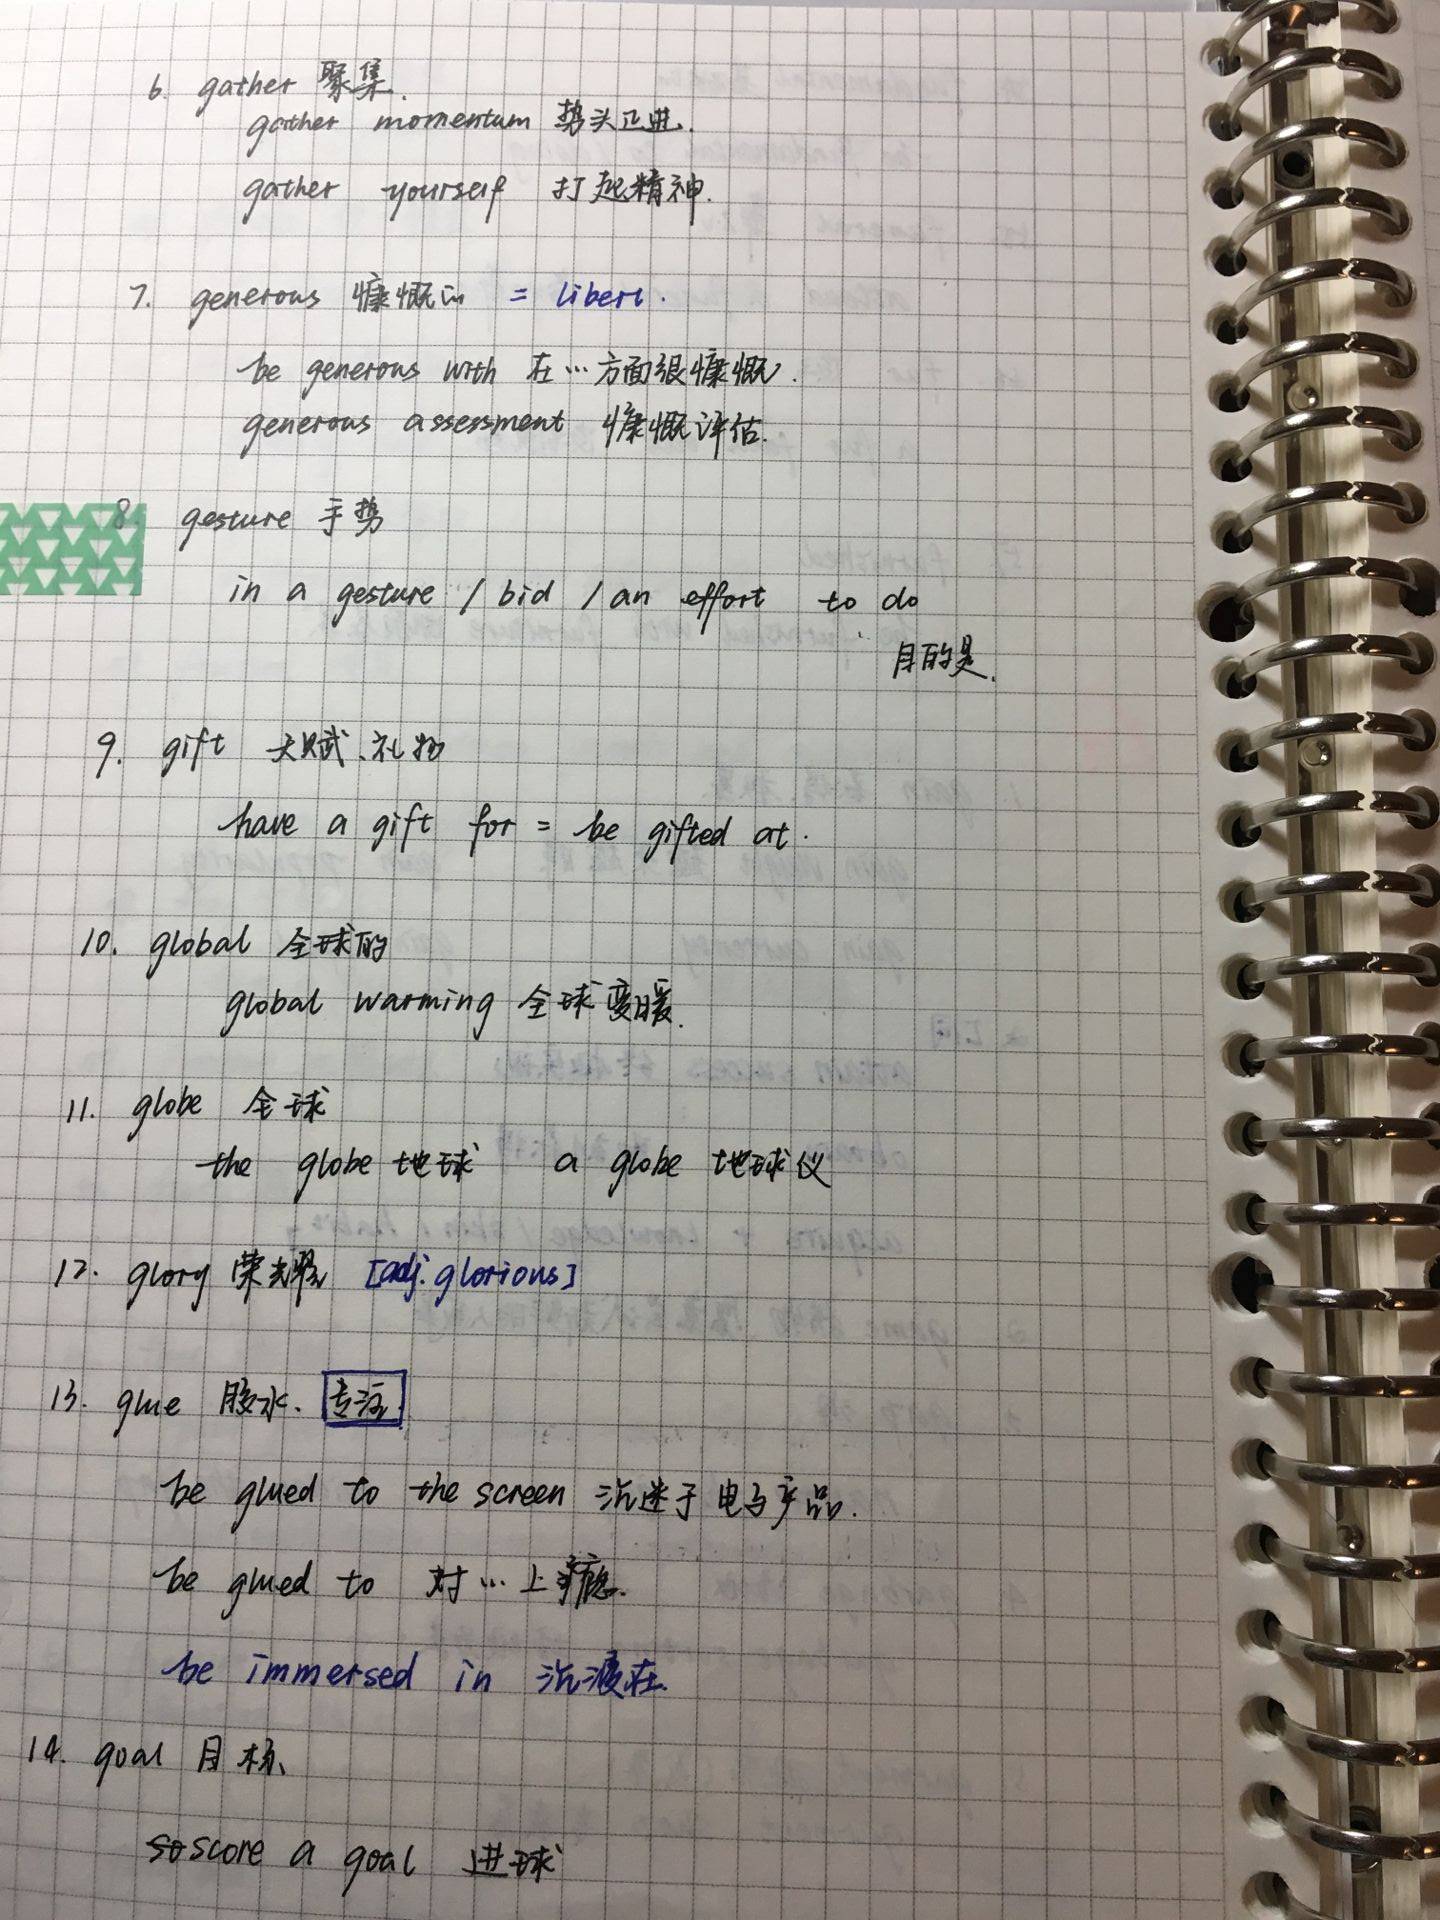 6. gather 聚集.
gather momentum 势头正进.
gather yourself 打起精神.
7. generous 慷慨的 = liberl.
be generous with 在…方面很慷慨.
generous assessment 慷慨评估.
8. gesture 手势
in a gesture / bid / an effort to do
目的是.
9. gift 天赋、礼物
have a gift for = be gifted at.
10. global 全球的
global warming 全球变暖.
11. globe 全球
the globe 地球 a globe 地球仪
12. glory 荣光 [adj. glorious]
13. glue 胶水. 专注
be glued to the screen 沉迷于电子产品.
be glued to 对…上瘾.
be immersed in 沉浸在.
14. goal 目标
score a goal 进球